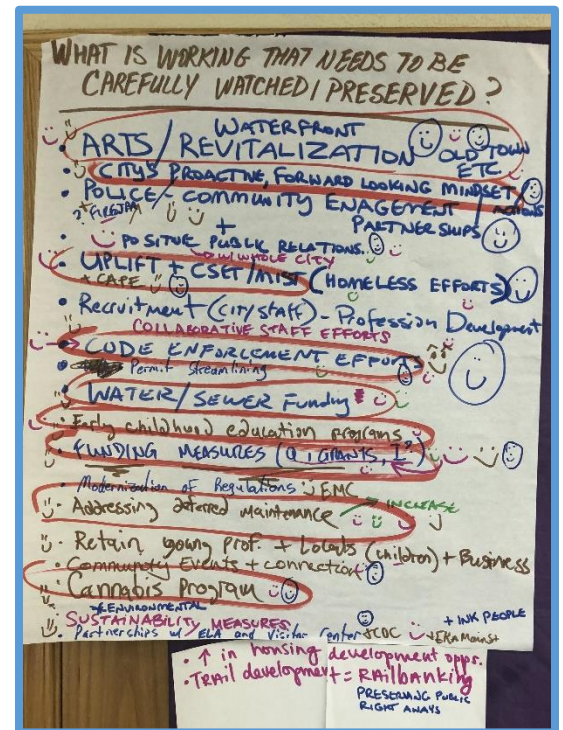 WHAT IS WORKING THAT NEEDS TO BE
CAREFULLY WATCHED / PRESERVED?
WATERFRONT
• ARTS / REVITALIZATION OLD TOWN
ETC
• CITY'S PROACTIVE, FORWARD LOOKING MINDSET /
ACTIONS
• POLICE / COMMUNITY ENAGEMENT
+ PARTNERSHIPS
• POSITIVE PUBLIC RELATIONS..
W/ WHOLE CITY
• UPLIFT + CSET/MIST (HOMELESS EFFORTS)
+ CAPE
• Recruitment (City staff) - Profession Development
COLLABORATIVE STAFF EFFORTS
• CODE ENFORCEMENT EFFORTS
• Permit streamlining
• WATER/SEWER Funding
• Early childhood education programs
• FUNDING MEASURES (Q, GRANTS,
• Modernization of Regulations EMC
• Addressing deferred maintenance → INCREASE
• Retain young prof. + Locals (children) + Business
• Community Events + connection
• Cannabis Program
ENVIRONMENTAL
SUSTAINABILITY MEASURES
• Partnerships w/ and Visitor center + CDC
+ INK PEOPLE
+ EKA Mainst
• ↑ in housing development opps.
• TRAIL development = RAilbanking
PRESERVING PUBLIC
RIGHT AWAYS